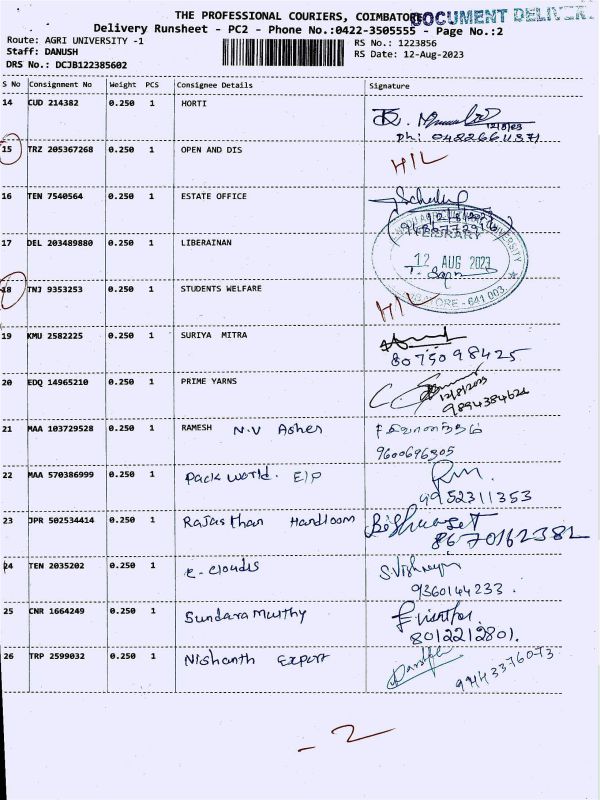 THE PROFESSIONAL COURIERS, COIMBATORE
DOCUMENT DELIVERY
Delivery Runsheet - PC2 - Phone No.:0422-3505555 - Page No.:2
Route: AGRI UNIVERSITY -1
RS No.: 1223856
Staff: DANUSH
RS Date: 12-Aug-2023
DRS No.: DCJB122385602
S No Consignment No Weight PCS Consignee Details Signature
14 CUD 214382 0.250 1 HORTI
12/8/23
Ph:
15 TRZ 205367268 0.250 1 OPEN AND DIS H/L
16 TEN 7540564 0.250 1 ESTATE OFFICE
17 DEL 203489880 0.250 1 LIBERAINAN
LIBRARY
12 AUG 2023
18 TNJ 9353253 0.250 1 STUDENTS WELFARE H/L
641 003.
19 KMU 2582225 0.250 1 SURIYA MITRA
8075098425
20 EDQ 14965210 0.250 1 PRIME YARNS
12/8/2023
9894384624
21 MAA 103729528 0.250 1 RAMESH N.V Asher
9600696305
22 MAA 570386999 0.250 1 Pack world. E/P
9952311353
23 JPR 502534414 0.250 1 Rajasthan Handloom
8670162382
24 TEN 2035202 0.250 1 e-clouds
9360144233.
25 CNR 1664249 0.250 1 Sundara Murthy
8012212801.
26 TRP 2599032 0.250 1 Nishanth Export
9443376073
- 2